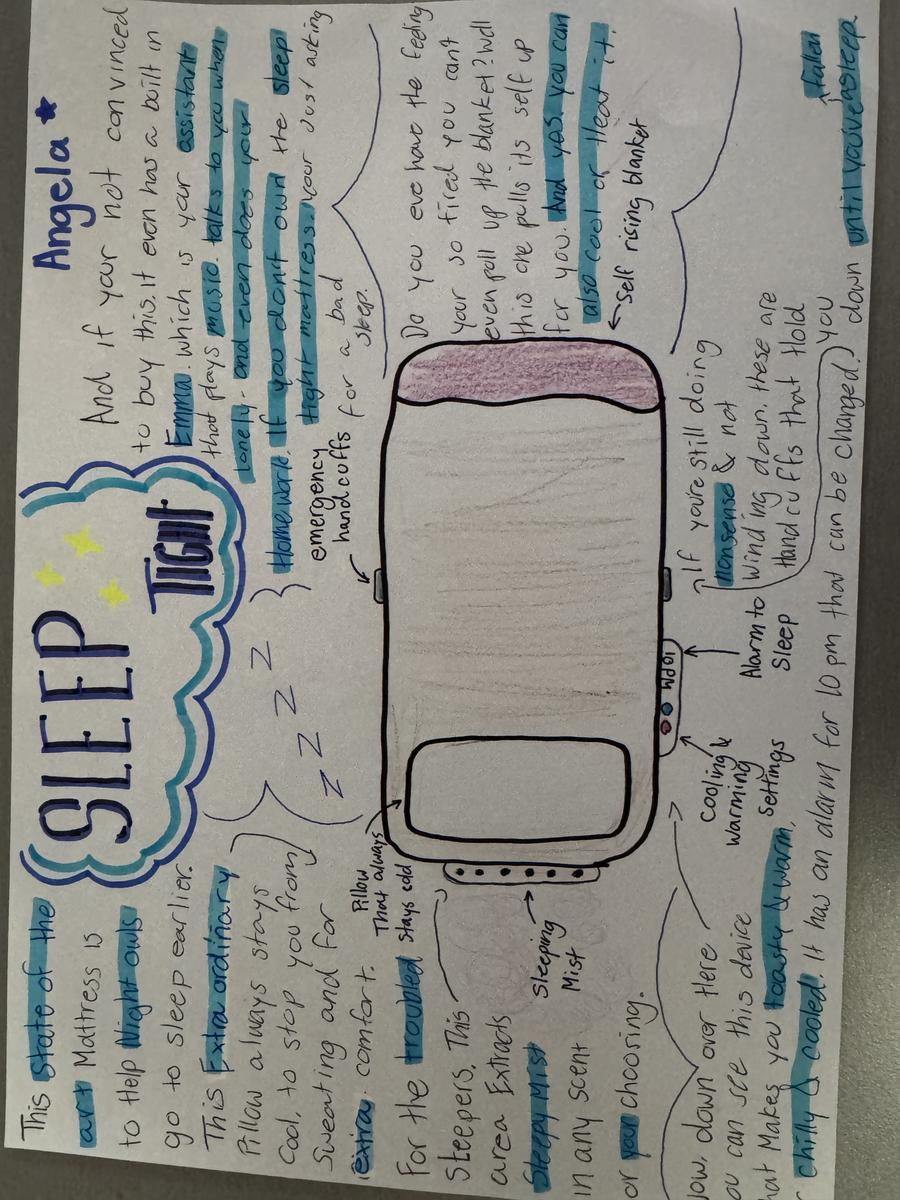 SLEEP
TIGHT
Angela
This State of the
art Mattress is
to Help Night owls
go to sleep earlier.
This Extraordinary
Pillow always stays
Cool, to stop you from
Sweating and for
extra comfort.
For the troubled
Sleepers. This
area Extracts
Sleepy Mist
in any scent
or your choosing.
And if your not convinced
to buy this, it even has a built in
Emma. which is your assistant
that plays music. talks to you when
lonely. and even does your
Homework. If you don't own the sleep
tight mattress. your Just asking
for a bad
sleep.
z z z z
emergency
hand cuffs
Pillow
That always
stays cold
Sleeping
Mist
Do you eve have the feeling
your so tired you can't
even pull up the blanket? Well
this one pulls its self up
for you. And yes you can
also cool or Heat it.
Self rising blanket
10PM
Cooling &
Warming
Settings
Alarm to
Sleep
If you're still doing
nonsense & not
winding down. these are
Handcuffs that Hold
you
down until you've asleep
fallen
low, down over Here
ou can see this device
hat Makes you toasty & warm,
chilly & cooled! It has an alarm for 10 pm that can be changed!